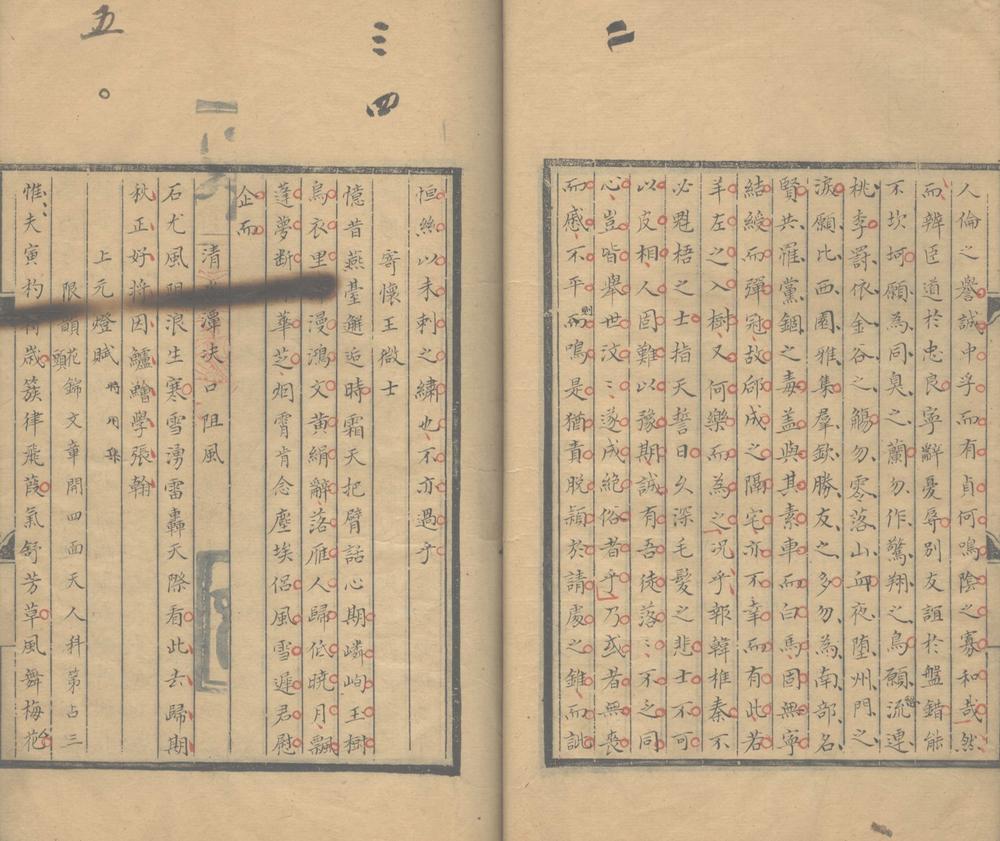 二
人倫之譽誠中孚而有貞何鳴陰之寡和哉然
而辨臣道於忠良寧辭憂辱別友誼於盤錯能
不坎坷願為同臭之蘭勿作驚翔之鳥願流連
桃李爵依金谷之觴勿零落山血夜墮州門之
淚願比西園雅集羣欽勝友之多勿為南部名
賢共罹黨錮之毒蓋與其素車而白馬固無寧
結綬而彈冠故郈成之隔宅亦不幸而有此若
羊左之入樹又何樂而為之況乎報韓椎秦不
必魁梧之士指天誓日久深毛髮之悲士不可
以皮相人固難以豫期誠有吾徒落〻不之同
心豈皆舉世汶〻遂成絕俗者乎乃或者無喪
而慼不平則鳴是猶責脫穎於請處之錐而訕
三 四
恒絲以未刺之繡也不亦過乎
寄懷王徵士
憶昔燕臺邂逅時霜天把臂話心期嶙峋玉樹
烏衣里漫鴻文黃絹辭落雁人歸低曉月飄
蓬夢斷華芝烟霄肯念塵埃侶風雪遲君慰
企而
清潭決口阻風
石尤風阻浪生寒雪湧雷轟天際看此去歸期
秋正好將因鱸鱠學張翰
五
上元燈賦
限韻花錦文章開四面天人科第占三
頭
惟夫寅杓歲簇律飛葭氣舒芳草風舞梅花